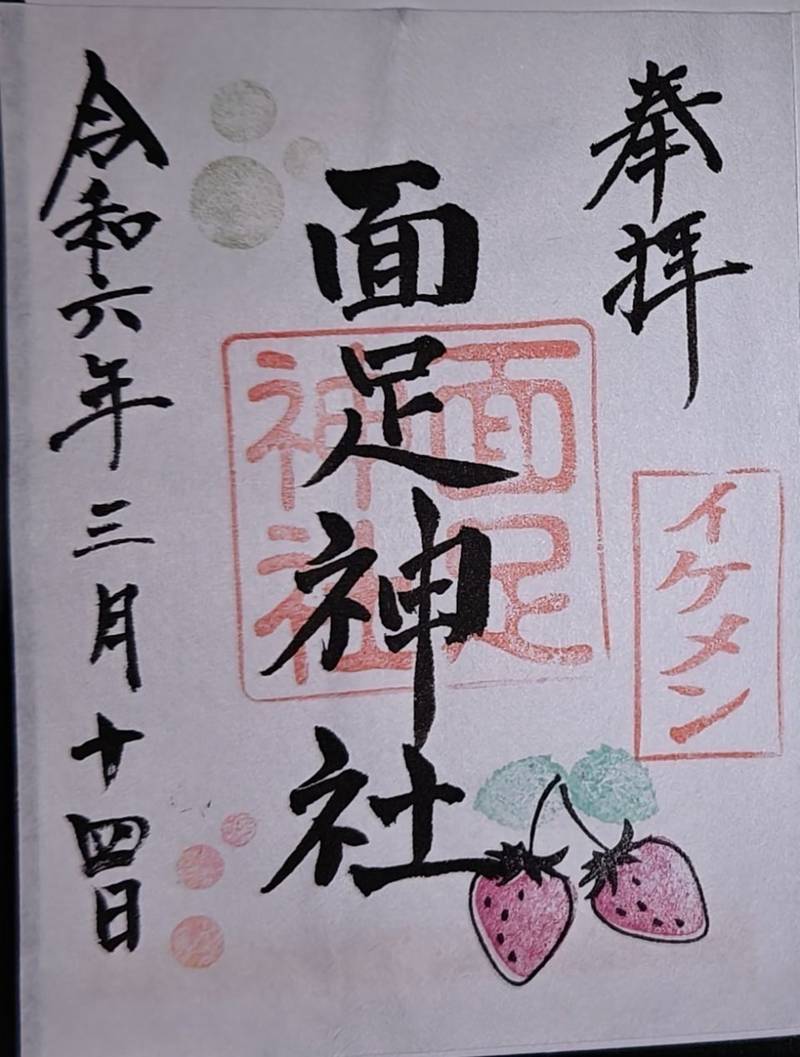 奉拝
イケメン
面足神社
面足
神社
令和六年三月十四日